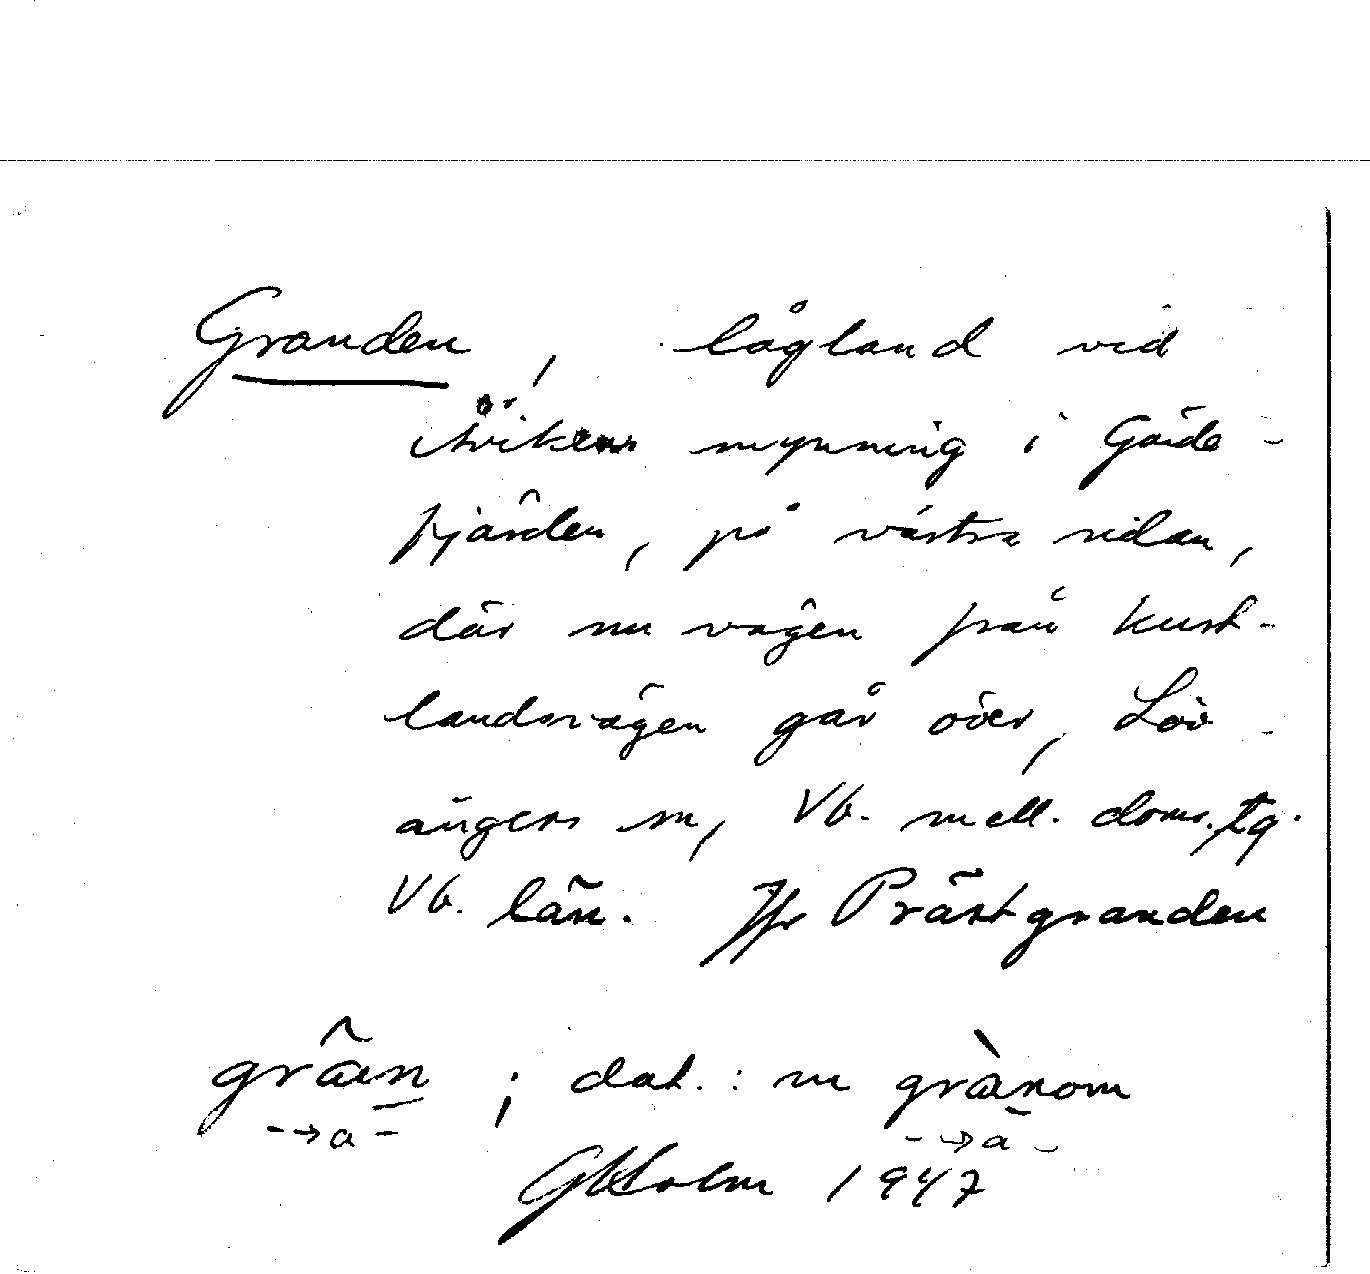 Granden, lågland vid
Avikens mynning i Gäde-
fjärden, på västra sidan,
där nu vägen från kust-
landsvägen går över, Löv-
ångers sn, Vb. mell. doms. tg.
Vb. län. Jfr Prästgranden
grân ; dat. : nu grànom
→a - - →a -
Holm 1947